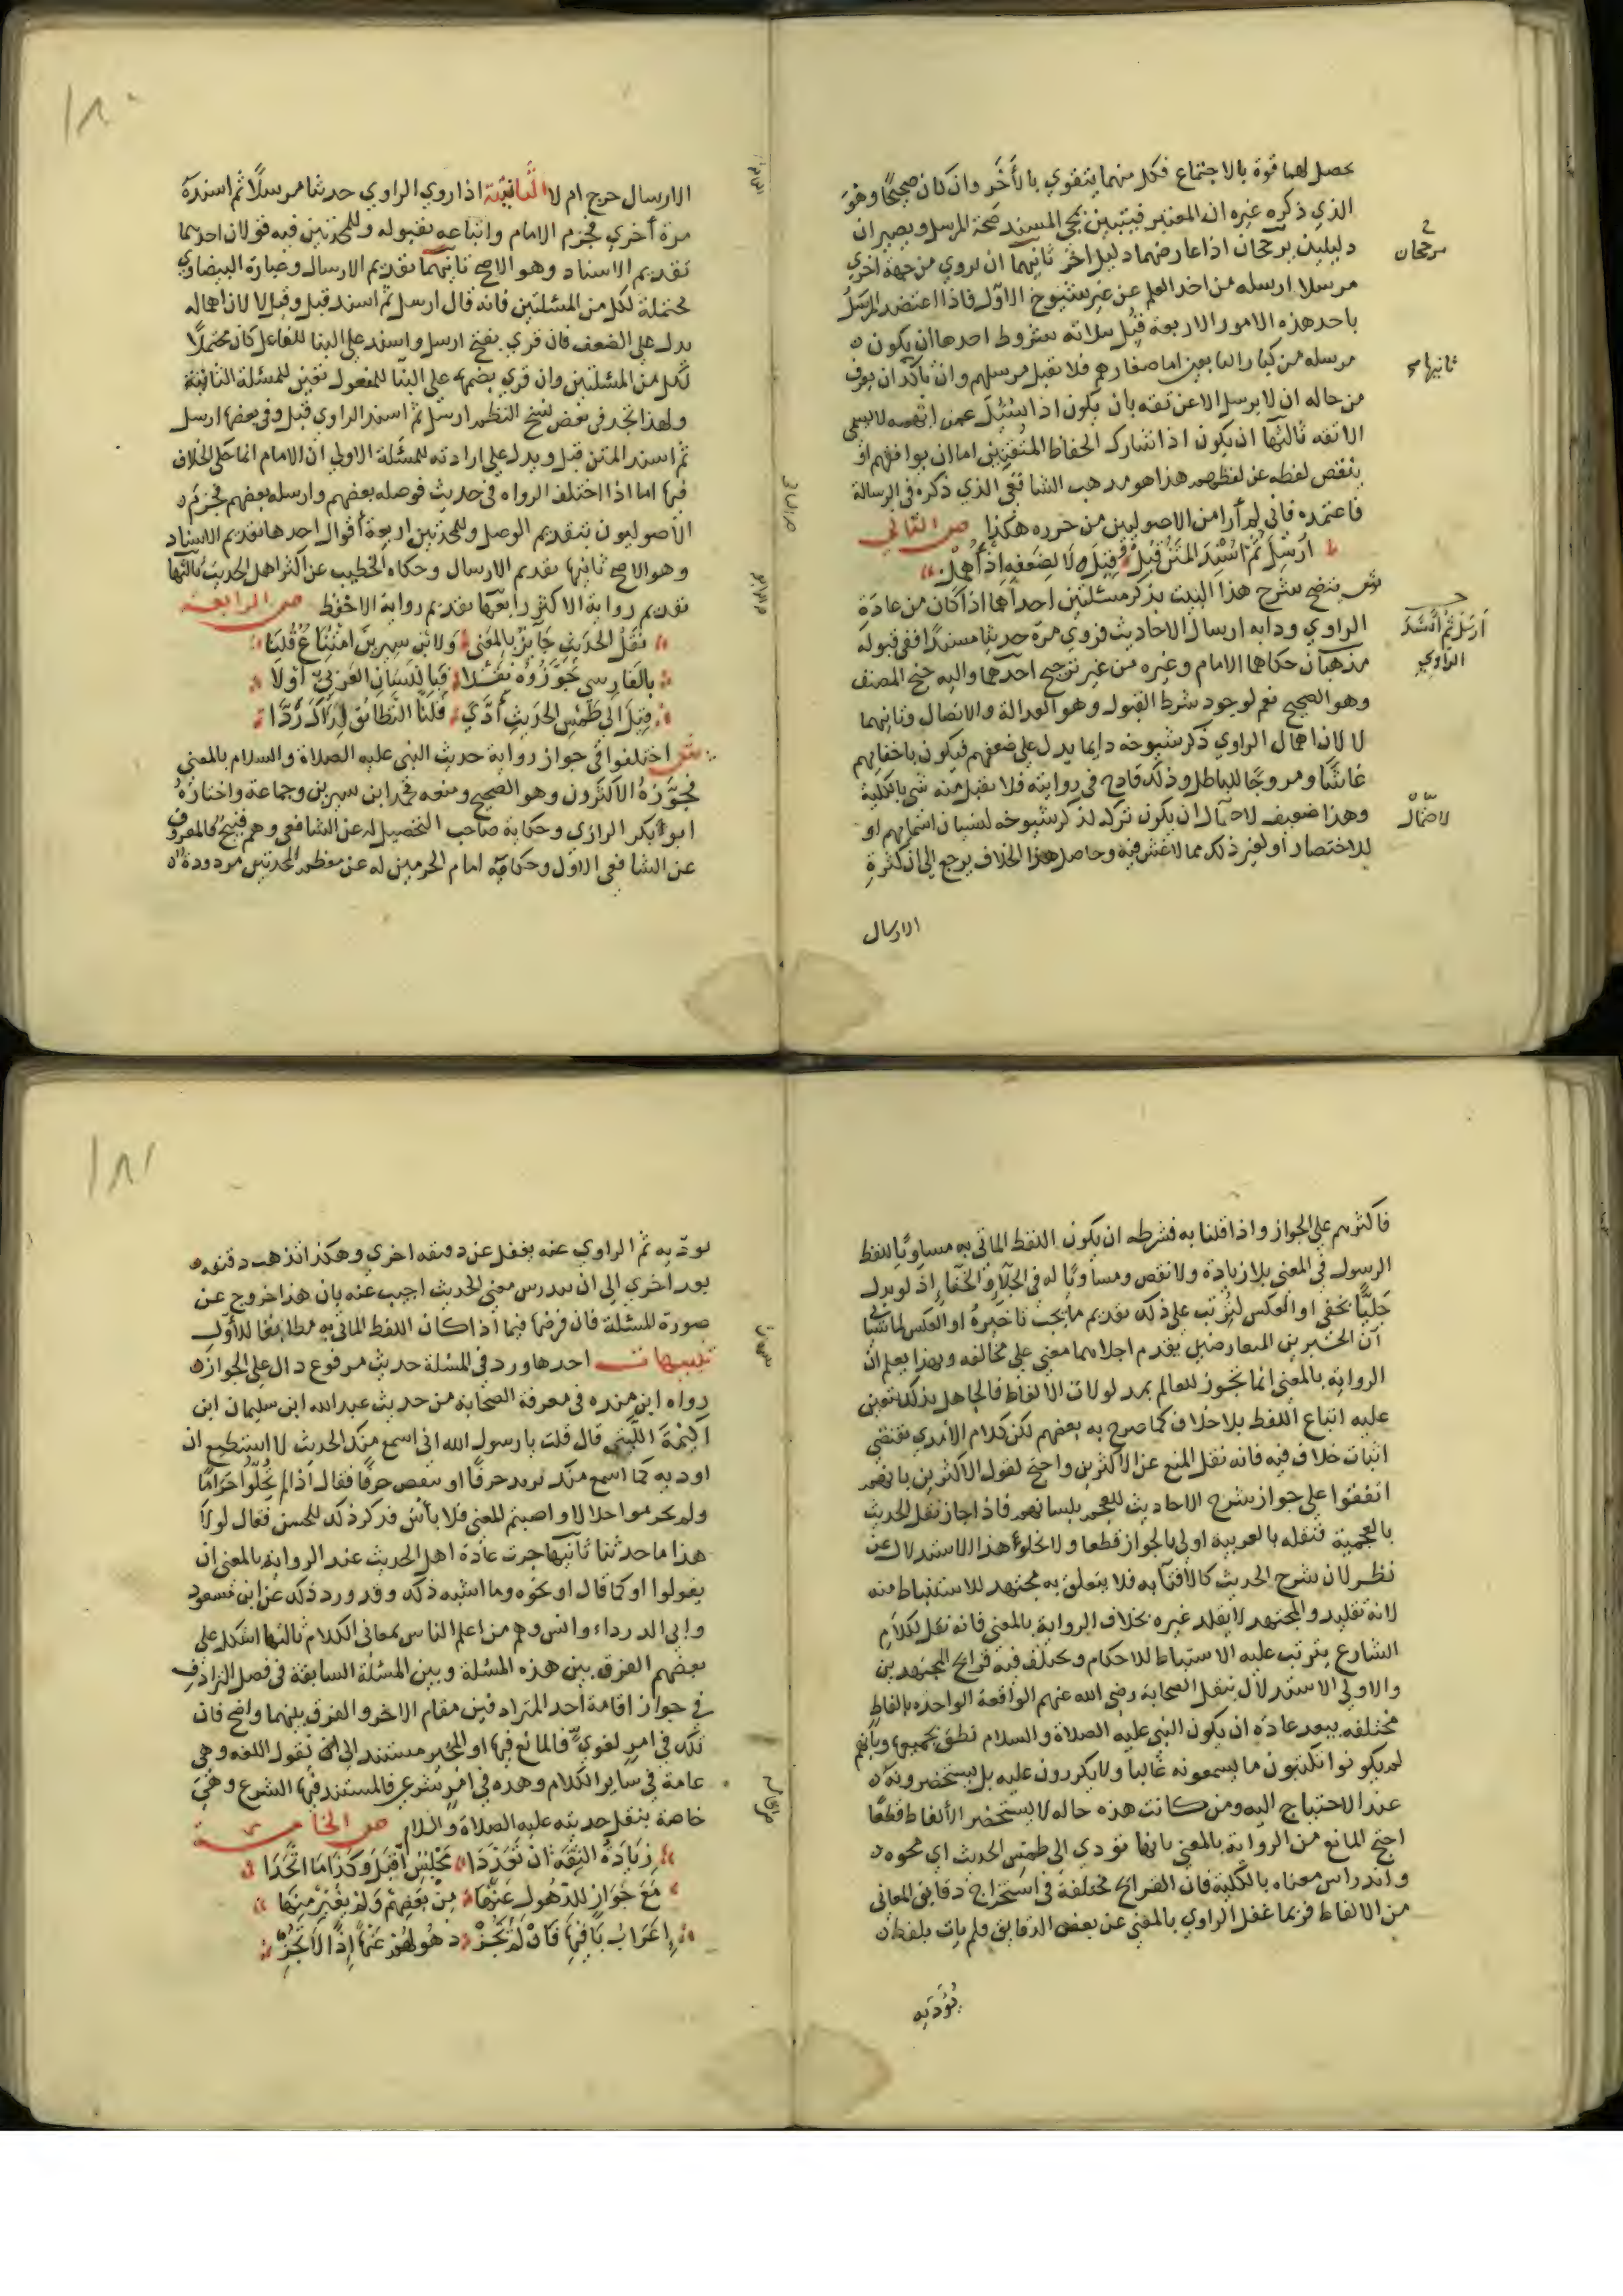 يحصل لهما قوة بالاجتماع فكل منهما يتقوي بالأخر وان كان صحيحًا وهو
الذي ذكره غيره ان المعتبر فيتبين بمجي المسند صحة المرسل ويصيران
دليلين يرجحان اذا عارضهما دليل اخر ثانيهما ان يروي من جهة اخري
مرجحان
مرسلا ارسله من اخذ العلم عن غير شيوخ الاول فاذا اعتضد المرسل
باحد هذه الامور الاربعة قبل بثلاثة شروط احدها ان يكون
مرسله من كبار التابعين اما صغارهم فلا تقبل مرسلهم وان تأكد ان يعرف
ثانيها
من حاله ان لا يرسل الا عن ثقه بان يكون اذا سئل عمن ابهمه لا يسمي
الا ثقه ثالثها ان يكون اذا شارك الحفاظ المتقنين اما ان يوافقهم او
ينقص لفظه عن لفظهم هذا هو مذهب الشافعي الذي ذكره في الرسالة
فاعتمده فاني لم أر من الاصوليين من حرره هكذا ص الثالثي
ارسل ثم اسند المتن قبل وقيل لا لضعفه اذ أهمل
ش يتضح شرح هذا البيت بذكر مسئلتين احداها اذا كان من عادة
الراوي ودابه ارسال الاحاديث فروي مرة حديثا مسندا ففي قبوله
ارسل ثم اسند
الراوي
مذهبان حكاهما الامام وغيره من غير ترجيح احدهما واليه جنح المصنف
وهو الصحيح نعم لوجود شرط القبول وهو العدالة والاتصال وثانيهما
لا لان اهمال الراوي ذكر شيوخه دايما يدل علي ضعفهم فيكون باخفايهم
غاشًّا ومروجًا للباطل وذلك قادح في روايته فلا يقبل منه شي بالكلية
وهذا ضعيف لاحتمال ان يكون ترك لذكر شيوخه لنسيان اسمايهم او
لاحتمال
للاختصار أو لغير ذلك مما لا غش فيه وحاصل هذا الخلاف يرجع الي ان كثرة
الارسال
١٨٠
الارسال جرح ام لا الثانية اذا روي الراوي حديثا مرسلًا ثم اسنده
مرة أخري فجزم الامام واتباعه بقبوله وللمحدثين فيه قولان احدهما
تقديم الاسناد وهو الاصح ثانيهما تقديم الارسال وعبارة البيضاوي
محتملة لكل من المسئلتين فانه قال ارسل ثم اسند قبل وقيل لا لان اهماله
يدل علي الضعف فان قري بفتح ارسل واسند علي البنا للفاعل كان محتملًا
لكل من المسئلتين وان قري بضمهما علي البنا للمفعول تعين للمسئلة الثانية
ولهذا تجد في بعض نسخ النظم ارسل ثم اسند الراوي قبل وفي بعضها ارسل
ثم اسند المتن قبل ويدل علي ارادته للمسئلة الاولي ان الامام انما حكي الخلاف
فيها اما اذا اختلف الرواه في حديث فوصله بعضهم وارسله بعضهم فجزم
الأصوليون بتقديم الوصل وللمحدثين اربعة أقوال احدها تقديم الاسناد
وهو الاصح ثانيها تقديم الارسال وحكاه الخطيب عن أكثر اهل الحديث ثالثها
تقديم رواية الاكثر رابعها تقديم رواية الاحفظ ص الرابعة
نقل الحديث جائز بالمعنى ولابن سيرين امتناع قلنا
بالفارسي جوزوه نقلا فباللسان العربي أولا
قيل الى طمس الحديث أدي قلنا التطابق لذاك ردا
ش اختلفوا في جواز رواية حديث النبي عليه الصلاة والسلام بالمعني
فجوزه الاكثرون وهو الصحيح ومنعه محمد ابن سيرين وجماعة واختاره
ابو بكر الرازي وحكاية صاحب التحصيل له عن الشافعي وهم قبيح فالمعروف
عن الشافعي الاول وحكاية امام الحرمين له عن معظم المحدثين مردودة
فاكثرهم علي الجواز واذا قلنا به فشرطه ان يكون اللفظ الماتي به مساويًا للفظ
الرسول في المعني بلا زيادة ولا نقص ومساويًا له في الجلا والخفا إذ لو بدل
جليًّا بخفي او العكس لترتب علي ذلك تقديم ما يجب تاخيره او العكس لما سيأتي
أن الخبرين المتعارضين يقدم اجلاهما معني علي مخالفه وبهذا يعلم ان
الرواية بالمعني انما تجوز للعالم بمدلولات الالفاظ فالجاهل بذلك يتعين
عليه اتباع اللفظ بلا خلاف كما صرح به بعضهم لكن كلام الآمدي يقتضي
اثبات خلاف فيه فانه نقل المنع عن الاكثرين واحتج لقول الاكثرين بانهم
اتفقوا علي جواز شرح الاحاديث للعجم بلسانهم فاذا جاز نقل الحديث
بالعجمية فنقله بالعربية اولي بالجواز قطعا ولا يخلو هذا الاستدلال عن
نظر لان شرح الحديث كالافتا به فلا يتعلق به مجتهد للاستنباط منه
لانه تقليد والمجتهد لا يقلد غيره بخلاف الرواية بالمعني فانه نقل لكلام
الشارع يترتب عليه الاستنباط للاحكام ويختلف فيه قرائح المجتهدين
والاولي الاستدلال بنقل الصحابة رضي الله عنهم الواقعة الواحده بالفاظ
مختلفه يبعد عادة ان يكون النبي عليه الصلاة والسلام نطق بجميعها وبأنهم
لم يكونوا يكتبون ما يسمعونه غالبا ولا يكررون عليه بل يستحضرونه
عند الاحتياج اليه ومن كانت هذه حاله لا يستحضر الألفاظ قطعًا
احتج المانع من الرواية بالمعني بانها تؤدي الى طمس الحديث اي محوه
واندراس معناه بالكلية فان القرائح مختلفة في استخراج دقايق المعاني
من الالفاظ فربما غفل الراوي بالمعني عن بعض الدقايق ولم يات بلفظ
يؤديه
١٨١
يوديه ثم الراوي عنه يغفل عن دقيقه اخري وهكذا تذهب دقيقه
بعد اخري إلى ان يندرس معني الحديث اجيب عنه بان هذا خروج عن
صورة المسئلة فان فرضها فيما اذا كان اللفظ الماتي به مطابقا للأول
تنبيهات احدها ورد في المسئلة حديث مرفوع دال علي الجواز
رواه ابن منده في معرفة الصحابة من حديث عبد الله ابن سليمان ابن
اكيمة الليثي قال قلت يا رسول الله اني اسمع منك الحديث لا استطيع ان
اوديه كما اسمع منك يزيد حرفًا او ينقص حرفًا فقال اذا لم تحلوا حرامًا
ولم تحرموا حلالا واصبتم المعني فلا بأس فذكر ذلك للحسن فقال لولا
هذا ما حدثنا ثانيها جرت عادة اهل الحديث عند الرواية بالمعني ان
يقولوا او كما قال او نحوه وما اشبه ذلك وقد ورد ذلك عن ابن مسعود
وابي الدرداء وانس وهم من اعلم الناس بمعاني الكلام ثالثها اشكل علي
بعضهم الفرق بين هذه المسئلة وبين المسئلة السابقة في فصل الترادف
في جواز اقامة أحد المترادفين مقام الاخر والفرق بينهما واضح فان
تلك في امر لغوي فالمانع فيها او المجيز مستند الى نقول اللغه وهي
عامة في ساير الكلام وهذه في امر شرعي فالمستند فيها الشرع وهي
خاصة بنقل حديثه عليه الصلاة والسلام ص الخامسة
زيادة الثقة ان تعددا مجلس اقبل وكذا ما اتحدا
مع جواز للذهول عنها من بعضهم ولم يغير منها
إعراب باقيها فان لم تجز ذهولهم عنها إذًا لا تجز